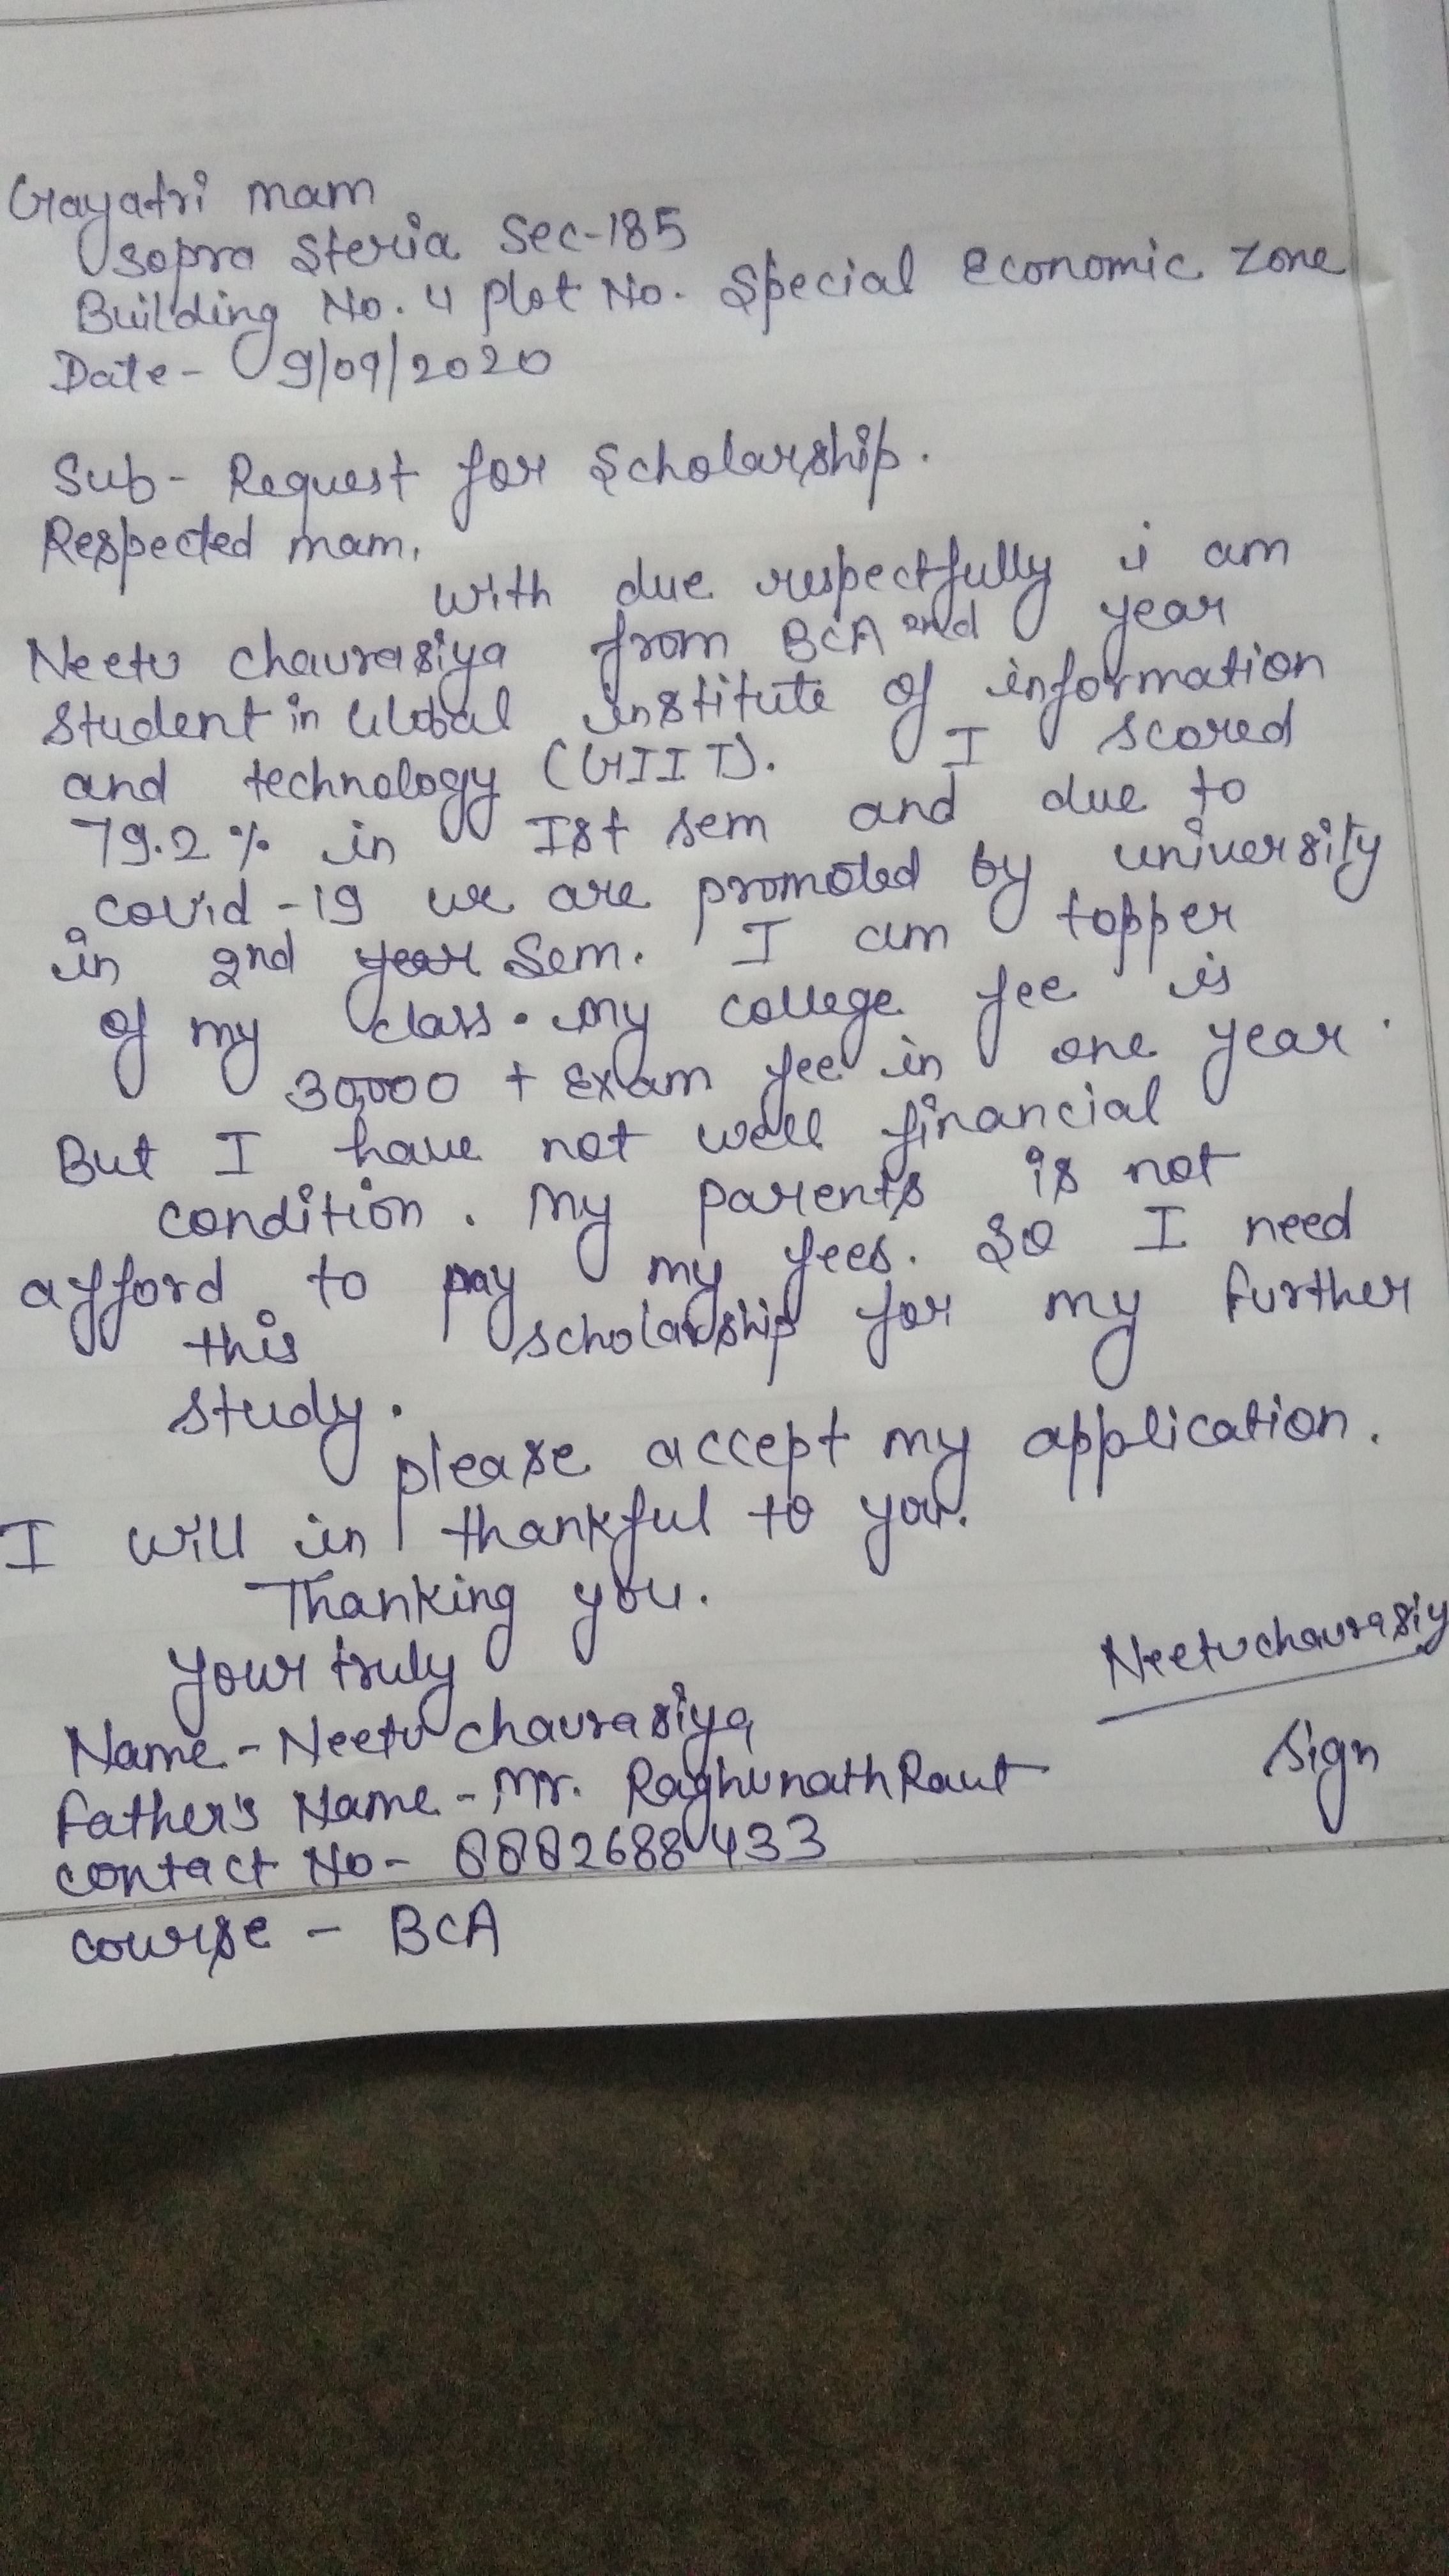 Gayatri mam
Sopra Steria Sec-185
Building No. 4 plot No. Special Economic Zone
Date - 9/09/2020
Sub - Request for Scholarship.
Respected mam,
with due respectfully i am
Neetu chaurasiya from BCA 2nd year
student in Global institute of information
and technology (GIIT). I scored
79.2% in Ist sem and due to
covid-19 we are promoted by university
in 2nd year Sem. I am topper
of my class. my college fee is
30,000 + Exam fee in one year.
But I have not well financial
condition. My parents is not
afford to pay my fees. So I need
this scholarship for my further
study.
please accept my application.
I will in thankful to you.
Thanking you.
Your truly
Neetu chaurasiy
Name - Neetu chaurasiya
Sign
Father's Name - Mr. Raghunath Raut
contact No - 8882688433
course - BCA